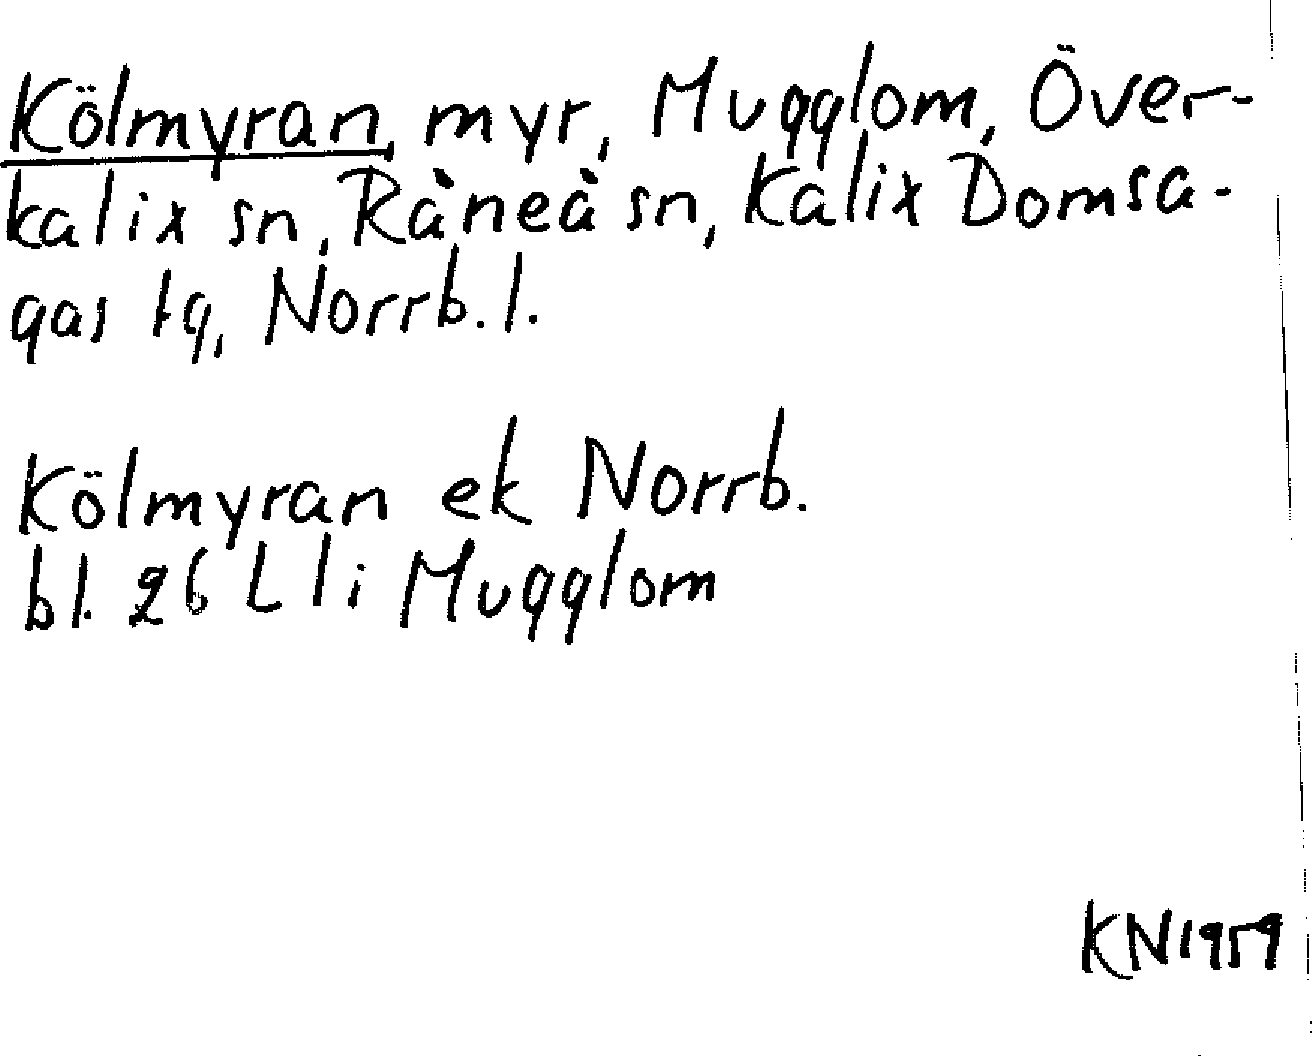 Kölmyran, myr, Mugglom, Över-
kalix sn, Råneå sn, Kalix Domsa-
gas tg, Norrb. l.
Kölmyran ek Norrb.
bl. 26 L l i Mugglom
KN 1959